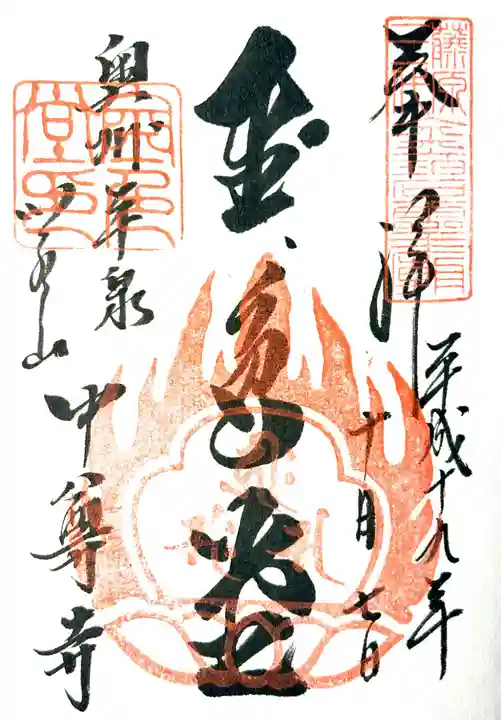 奉拝
平成十九年
十月七日
金色堂
奥州平泉
関山
中尊寺
金色堂印